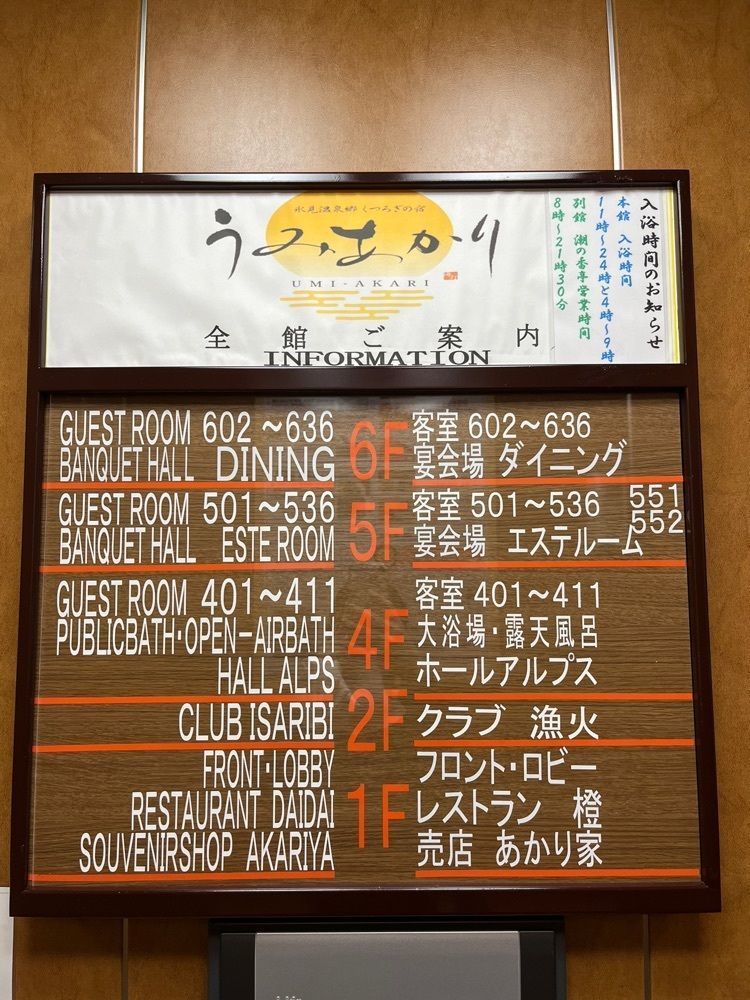 氷見温泉郷 くつろぎの宿
うみあかり
UMI-AKARI
全館ご案内
INFORMATION
入浴時間のお知らせ
本館 入浴時間
11時～24時と4時～9時
別館 潮の香亭営業時間
8時～21時30分
GUEST ROOM 602～636 6F 客室 602～636
BANQUET HALL DINING 宴会場 ダイニング
GUEST ROOM 501～536 5F 客室 501～536 551
552
BANQUET HALL ESTE ROOM 宴会場 エステルーム
GUEST ROOM 401～411 4F 客室 401～411
PUBLICBATH・OPEN-AIRBATH 大浴場・露天風呂
HALL ALPS ホールアルプス
CLUB ISARIBI 2F クラブ 漁火
FRONT・LOBBY 1F フロント・ロビー
RESTAURANT DAIDAI レストラン 橙
SOUVENIRSHOP AKARIYA 売店 あかり家